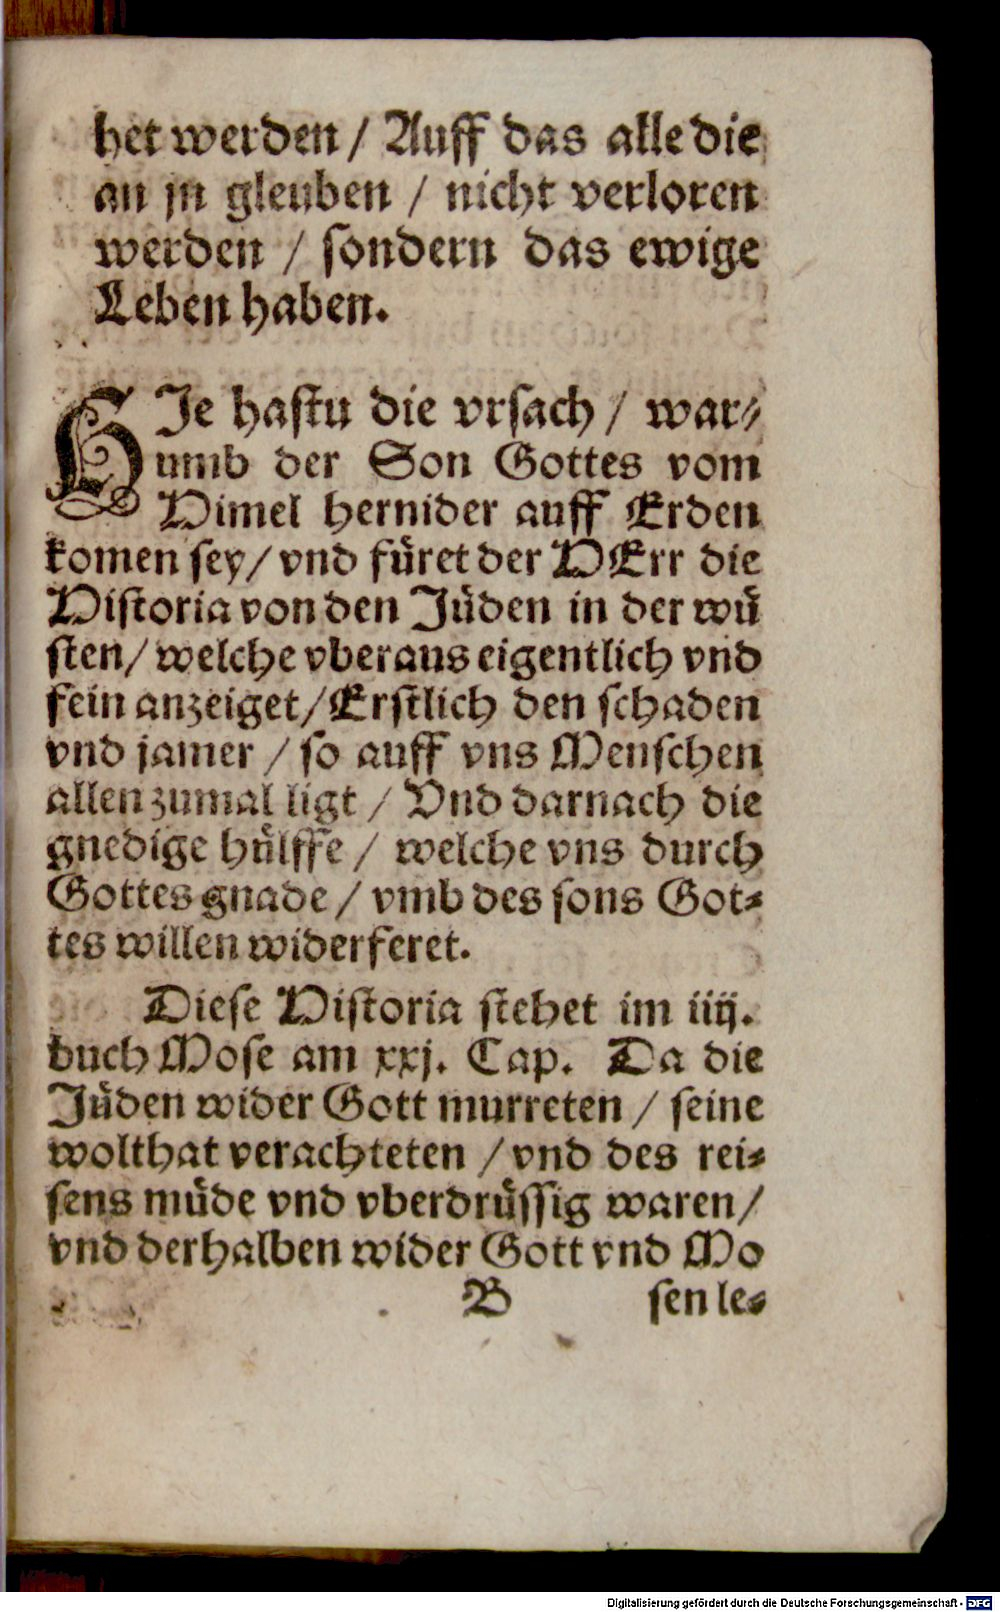 het werden / Auff das alle die
an jn gleuben / nicht verloren
werden / sondern das ewige
Leben haben.
HIe hastu die vrsach / war⸗
umb der Son Gottes vom
Himel hernider auff Erden
komen sey / vnd füret der HErr die
Historia von den Jüden in der wü
sten / welche vberaus eigentlich vnd
fein anzeiget / Erstlich den schaden
vnd jamer / so auff vns Menschen
allen zumal ligt / Vnd darnach die
gnedige hülffe / welche vns durch
Gottes gnade / vmb des sons Got⸗
tes willen widerferet.
Diese Historia stehet im iiij.
buch Mose am xxj. Cap. Da die
Jüden wider Gott murreten / seine
wolthat verachteten / vnd des rei⸗
sens müde vnd vberdrüssig waren /
vnd derhalben wider Gott vnd Mo
B sen le⸗
Digitalisierung gefördert durch die Deutsche Forschungsgemeinschaft - DFG